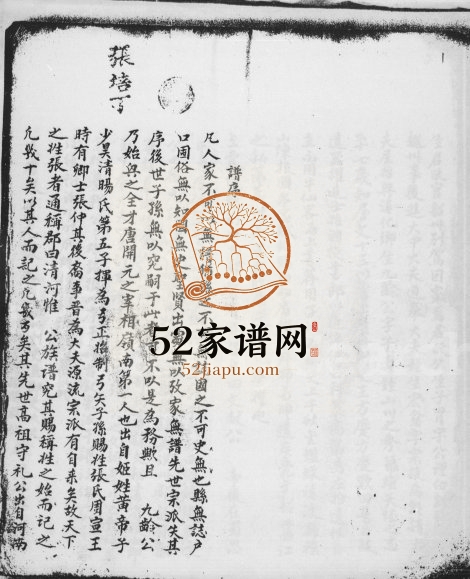 張培萬
譜序
凡人家不可無譜
國之不可史無也縣無誌户
口囯俗無以知
國無史聖賢出
無以攷家無譜先世宗派失其
序後世子孫無以究嗣于此
不以是為務歟且 九齡公
乃始興之全才唐開元之宰相嶺南第一人也出自姬姓黄帝子
少昊清暘氏第五子揮為弓正始制弓矢子孫賜姓張氏周宣王
時有卿士張仲其後裔事晋為大夫源流宗派有自来矣故天下
之姓張者通稱郡曰清河惟 公族譜究其賜稱姓之始而記之
凡幾十矣以其人而記之凡幾
矣其先世高祖守礼公出自河南
52家谱网
52jiapu.com